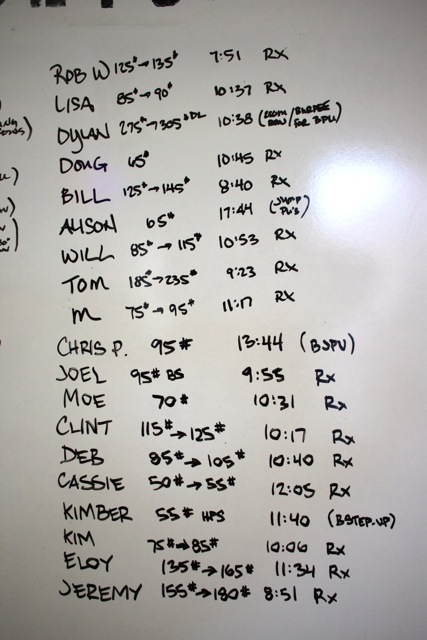 ROB W 125# → 135# 7:51 Rx
LISA 85# → 90# 10:37 Rx
DYLAN 275# → 305# DL 10:38 (250m ROW/BURPEE FOR BPU)
DOUG 65# 10:45 Rx
BILL 125# → 145# 8:40 Rx
ALISON 65# 17:44 (JUMP PU'S)
WILL 85# → 115# 10:53 Rx
TOM 185# → 235# 9:23 Rx
M 75# → 95# 11:17 Rx
CHRIS P. 95# 13:44 (BJPU)
JOEL 95# BS 9:55 Rx
MOE 70# 10:31 Rx
CLINT 115# → 125# 10:17 Rx
DEB 85# → 105# 10:40 Rx
CASSIE 50# → 55# 12:05 Rx
KIMBER 55# HPS 11:40 (BSTEP-UP)
KIM 75# → 85# 10:06 Rx
ELOY 135# → 165# 11:34 Rx
JEREMY 155# → 180# 8:51 Rx